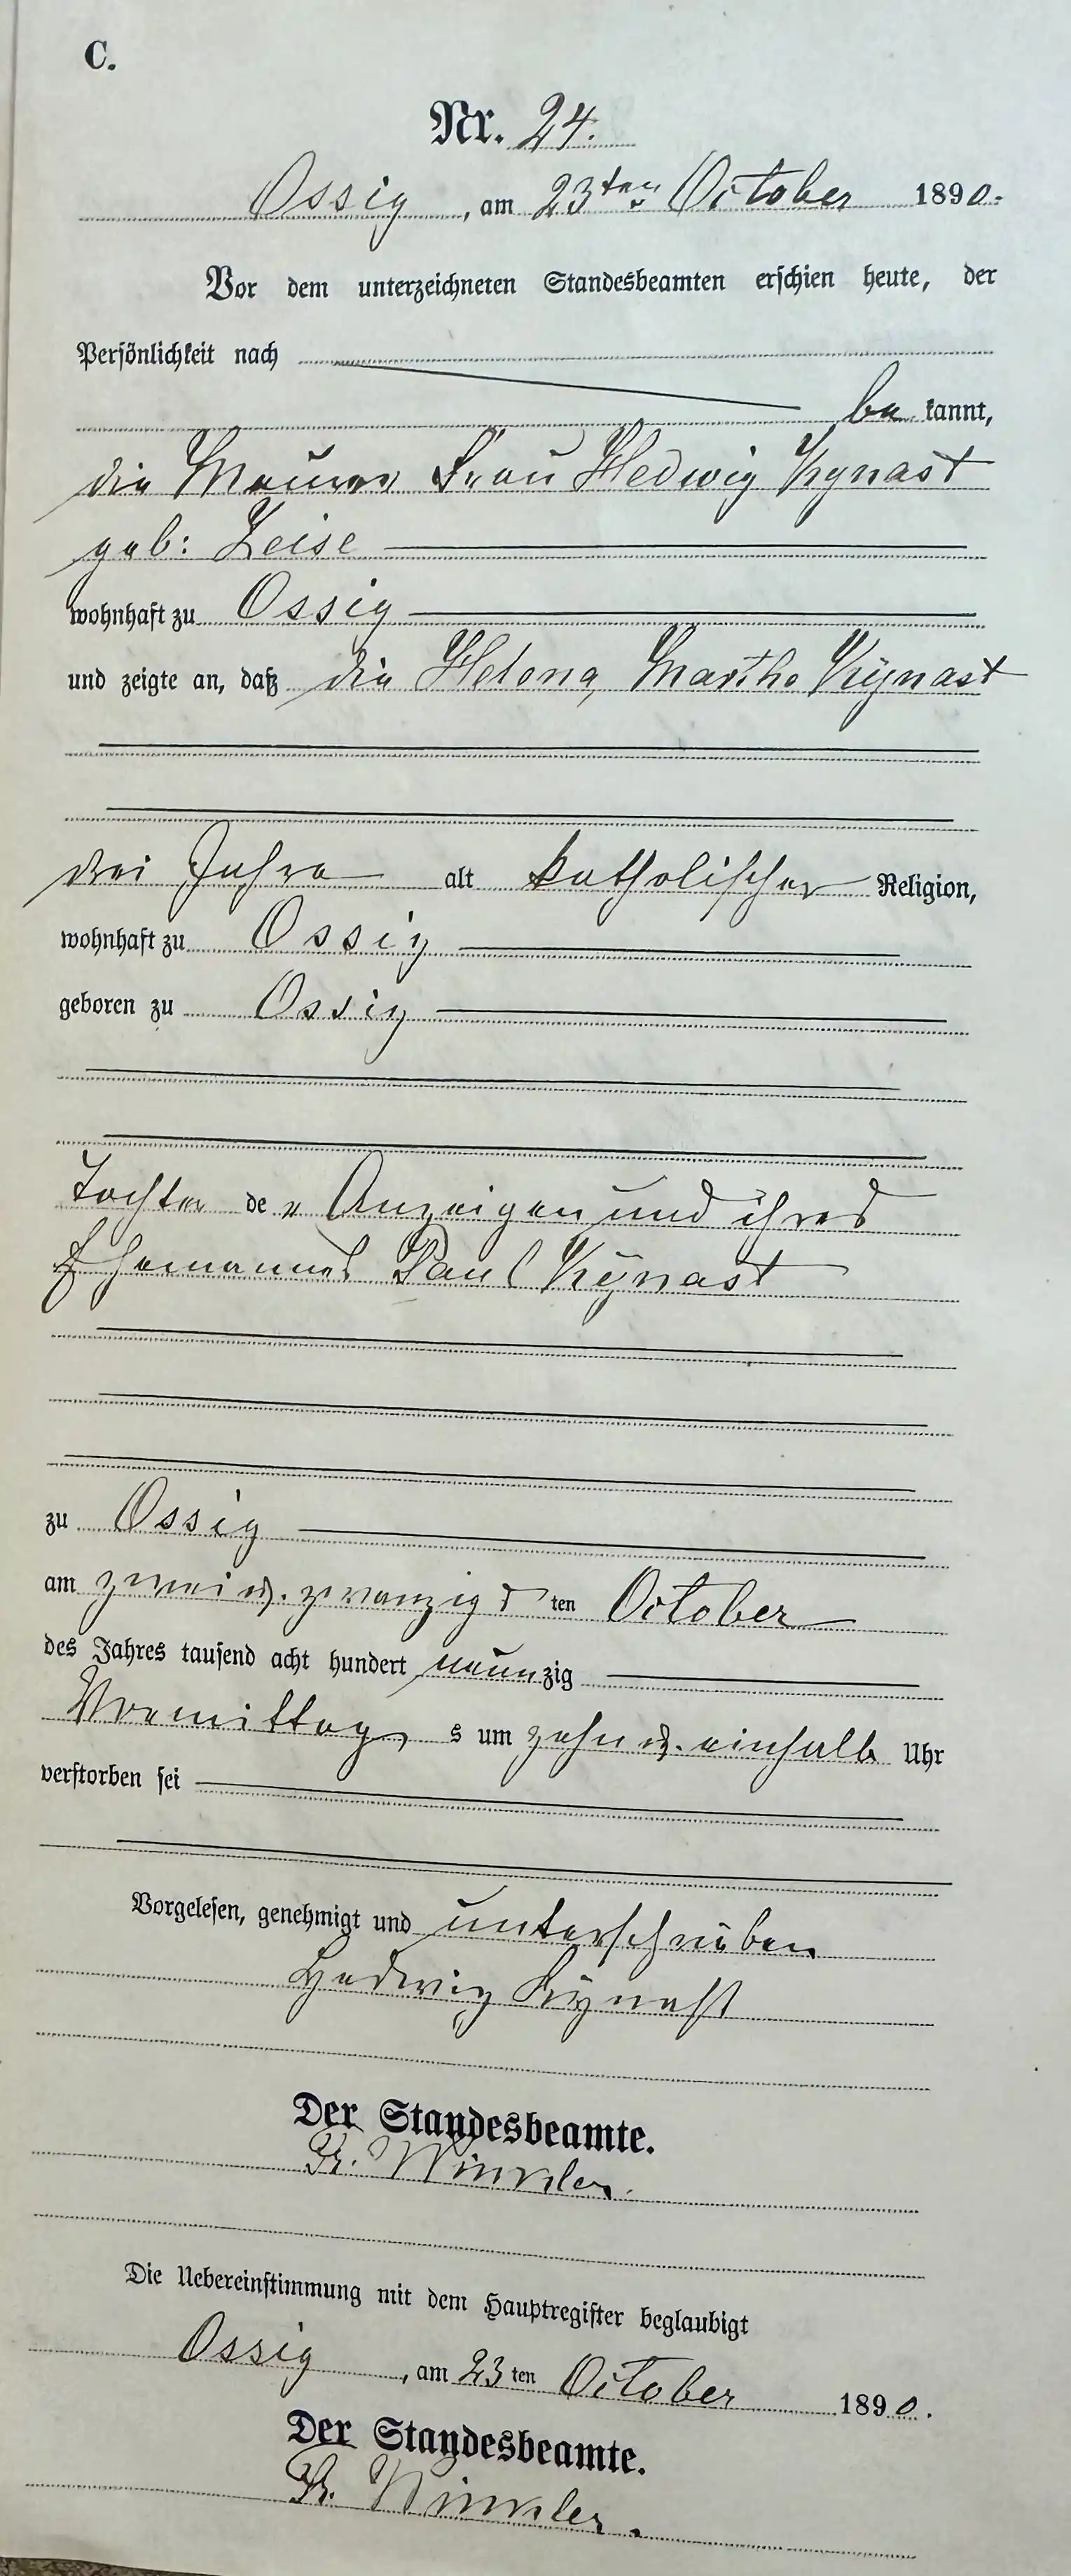 C.
Nr. 24.
Ossig, am 23ten October 1890.
Vor dem unterzeichneten Standesbeamten erschien heute, der
Persönlichkeit nach
be kannt,
die Maurer Frau Hedwig Kynast
geb: Zeise
wohnhaft zu Ossig
und zeigte an, daß die Helena, Martha Kÿnast
drei Jahre alt katholischer Religion,
wohnhaft zu Ossig
geboren zu Ossig
Tochter der Anzeigen und ihres
Ehemannes Paul Kÿnast
zu Ossig
am zwei u. zwanzigsten October
des Jahres tausend acht hundert neunzig
Vormittags um zehn u. einhalb Uhr
verstorben sei
Vorgelesen, genehmigt und unterschrieben
Hedwig Kÿnast
Der Standesbeamte.
Fr. Winkler.
Die Uebereinstimmung mit dem Hauptregister beglaubigt
Ossig, am 23ten October 1890.
Der Standesbeamte.
Fr. Winkler.